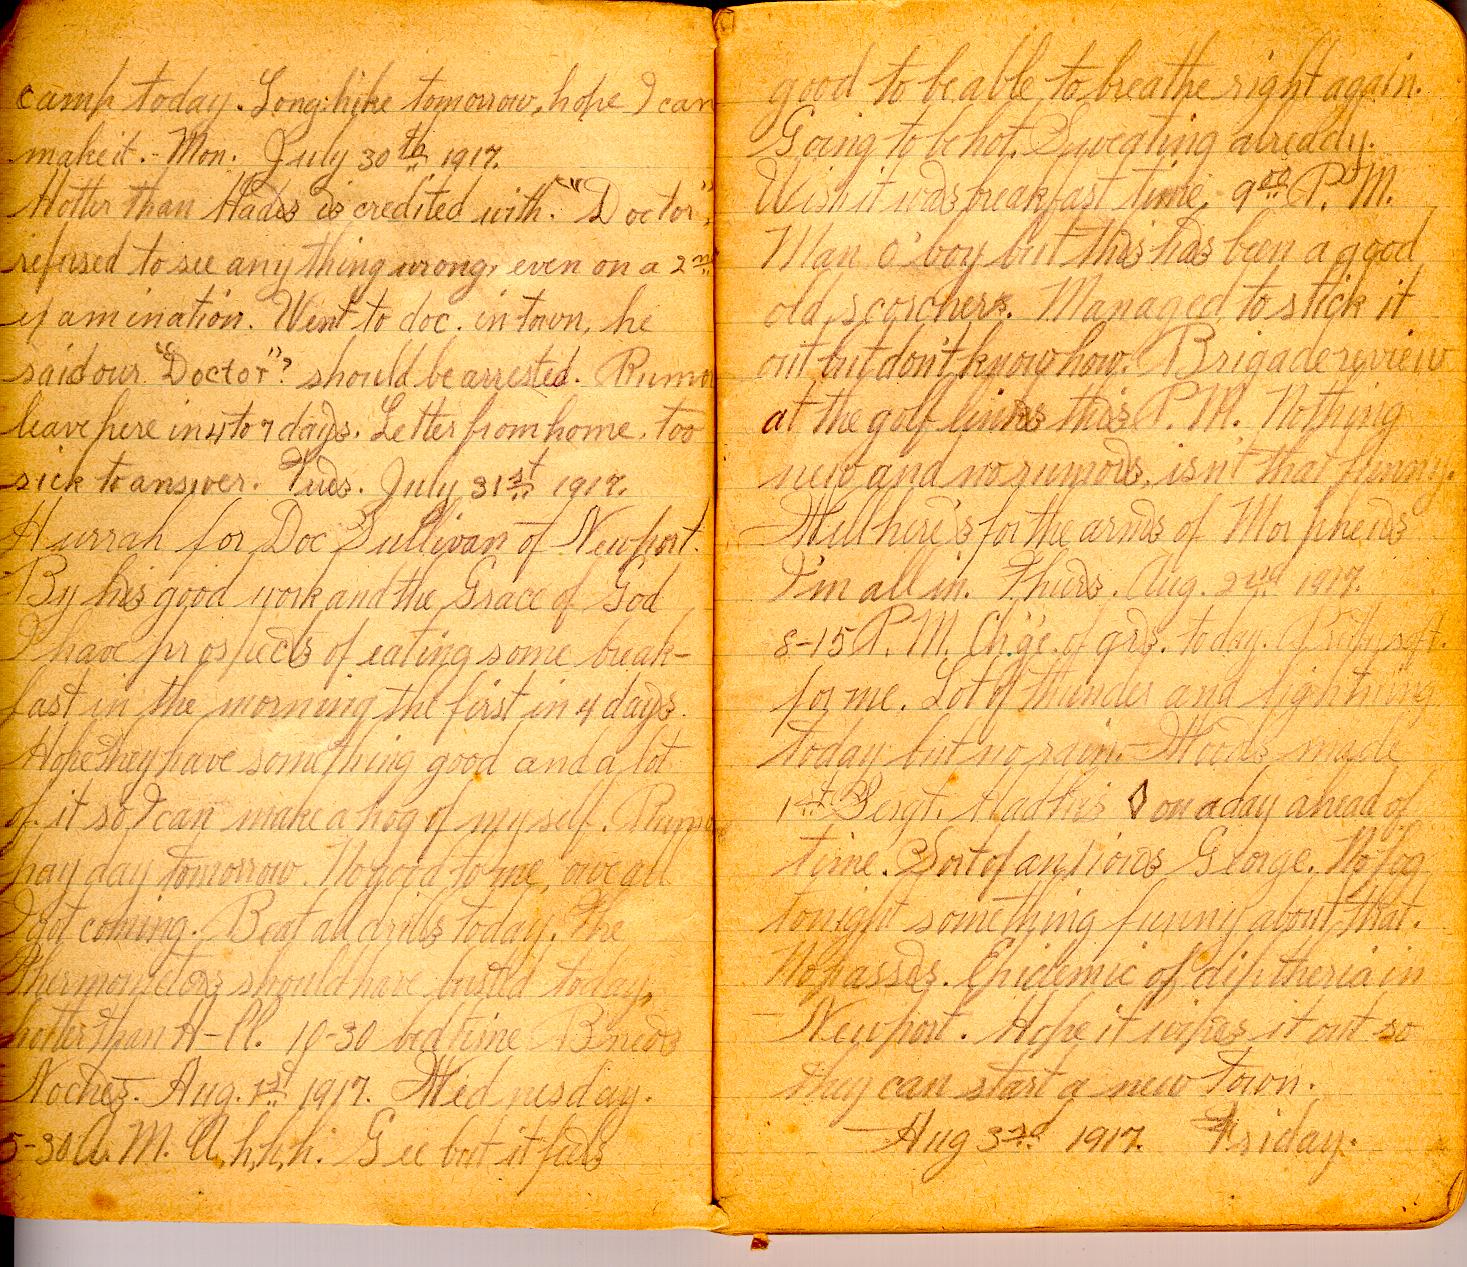 camp today. Long hike tomorrow, hope I can
make it. - Mon. July 30th 1917.
Hotter than Hades is credited with. "Doctor"
refused to see anything wrong, even on a 2nd
examination. Went to doc. in town, he
said our "Doctor"? should be arrested. Rumor
leave here in 4 to 7 days. Letter from home, too
sick to answer. Tues. July 31st 1917.
Hurrah for Doc Sullivan of Newport.
By his good work and the Grace of God
I have prospects of eating some break-
fast in the morning the first in 4 days.
Hope they have something good and a lot
of it so I can make a hog of myself. Rumor
pay day tomorrow. No good to me, owe all
I got coming. Beat all drills today. The
Thermometors should have busted today,
hotter than H-ll. 10-30 bed time Bneos
Noches. Aug. 1st 1917. Wednesday.
5-30 A.M. A.h.h.h. Gee but it feels
good to be able to breathe right again.
Going to be hot. Sweating already.
Wish it was breakfast time. 9:00 P.M.
Man o' boy but this has been a good
old scorcher. Managed to stick it
out but don't know how. Brigade review
at the golf links this P.M. Nothing
new and no rumors, isn't that funny.
Well here's for the arms of Morpheus
I'm all in. Thurs. Aug. 2nd 1917.
8-15 P.M. Ch'ge. of grs. today. Pretty soft
for me. Lot of thunder and lightning
today but no rain. - Woods made
1st Sergt. Had his ◊ on a day ahead of
time. Sort of anxious George. No fog
tonight something funny about that.
No passes. Epidemic of diptheria in
Newport. Hope it wipes it out so
they can start a new town.
Aug 3rd 1917. Friday.